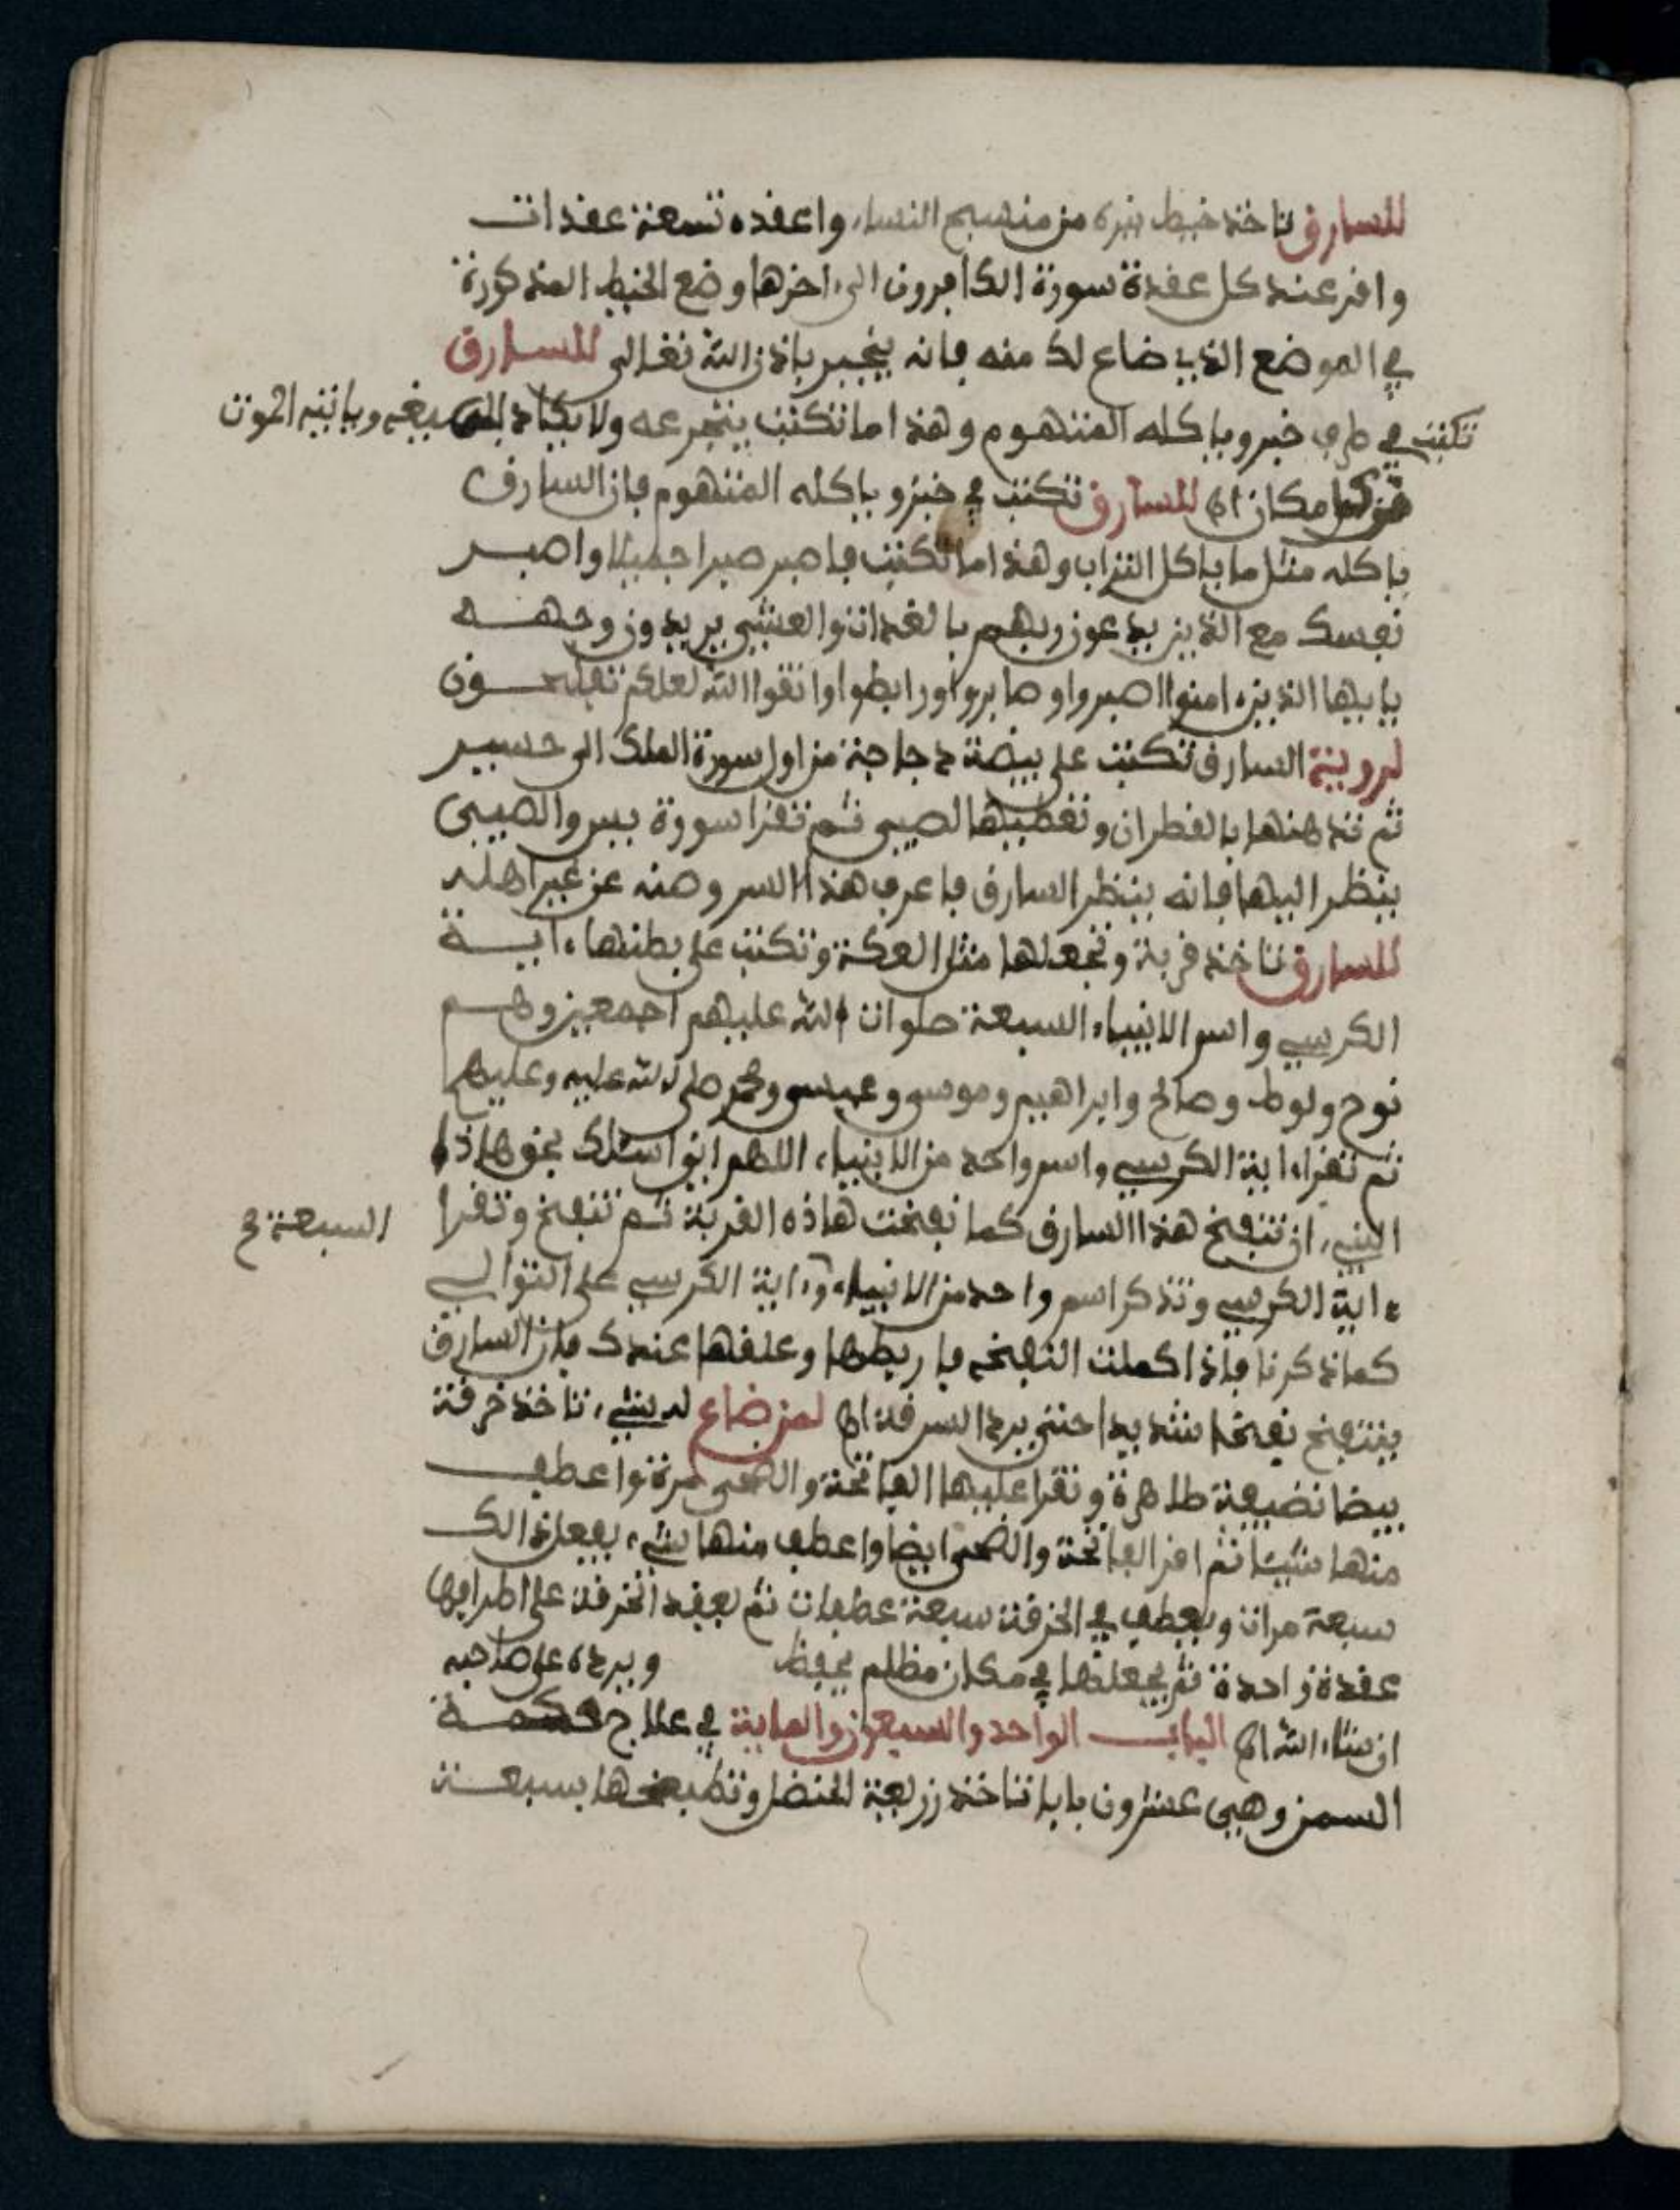 للسارق تاخذ خيط نيره من منسج النساء واعقده تسعة عقدات
واقر عند كل عقدة سورة الكافرون الى اخرها وضع الخيط المذكورة
في الموضع الذي ضاع لك منه فانه يخبر باذن الله تعالى للسارق
تكتب في طرف خبز وياكله المتهوم وهذا ما تكتب يتجرعه ولا يكاد يسيغه وياتيه الموت
من كل مكان اه للسارق تكتب في خبز وياكله المتهوم فان السارق
ياكله مثل ما ياكل التراب وهذا ما تكتب فاصبر صبرا جميلا واصبر
نفسك مع الذين يدعون ربهم بالغداة والعشي يريدون وجهه
يايها الذين ءامنوا اصبروا وصابروا ورابطوا واتقوا الله لعلكم تفلحون
لروية السارق تكتب على بيضة دجاجة من اول سورة الملك الى حسير
ثم تدهنها بالقطران وتعطيها لصبي ثم تقرا سورة يس والصبي
ينظر اليها فانه ينظر السارق فاعرف هذا السر وصنه عن غير اهله
للسارق تاخذ قربة وتجعلها مثل العكة وتكتب على بطنها ءاية
الكرسي واسم الانبياء السبعة صلوات الله عليهم اجمعين وهم
نوح ولوط وصالح وابراهيم وموسى وعيسى ومحمد صلى الله عليه وعليهم
ثم تقرا ءاية الكرسي واسم واحد من الانبياء اللهم اني اسئلك بحق هاذا
النبيء ان تنفخ هذا السارق كما نفخت هاذه القربة ثم تنفخ وتقرا
السبعة ح
ءاية الكرسي وتذكر اسم واحد من الانبياء وءاية الكرسي على التوالي
كما ذكرنا فاذا كملت النفخه فاربطها وعلقها عندك فان السارق
ينتفخ نفخا شديدا حتى يرد السرقة اه لمن ضاع له شيء تاخذ خرقة
بيضا نضيفة طاهرة وتقرا عليها الفاتحة والضحى مرة واعطف
منها شيئا ثم اقر الفاتحة والضحى ايضا واعطف منها شيء يفعل ذالك
سبعة مرات ويعطف في الخرقة سبعة عطفات ثم يعقد الخرقة على اطرافها
عقدة واحدة ثم يجعلها في مكان مظلم يحفظ ويرده على صاحبه
ان شاء الله اه الباب الواحد والسبعون والماية في علاج حكمة
السمن وهي عشرون بابا تاخذ زريعة الحنضل وتطبخها بسبعة